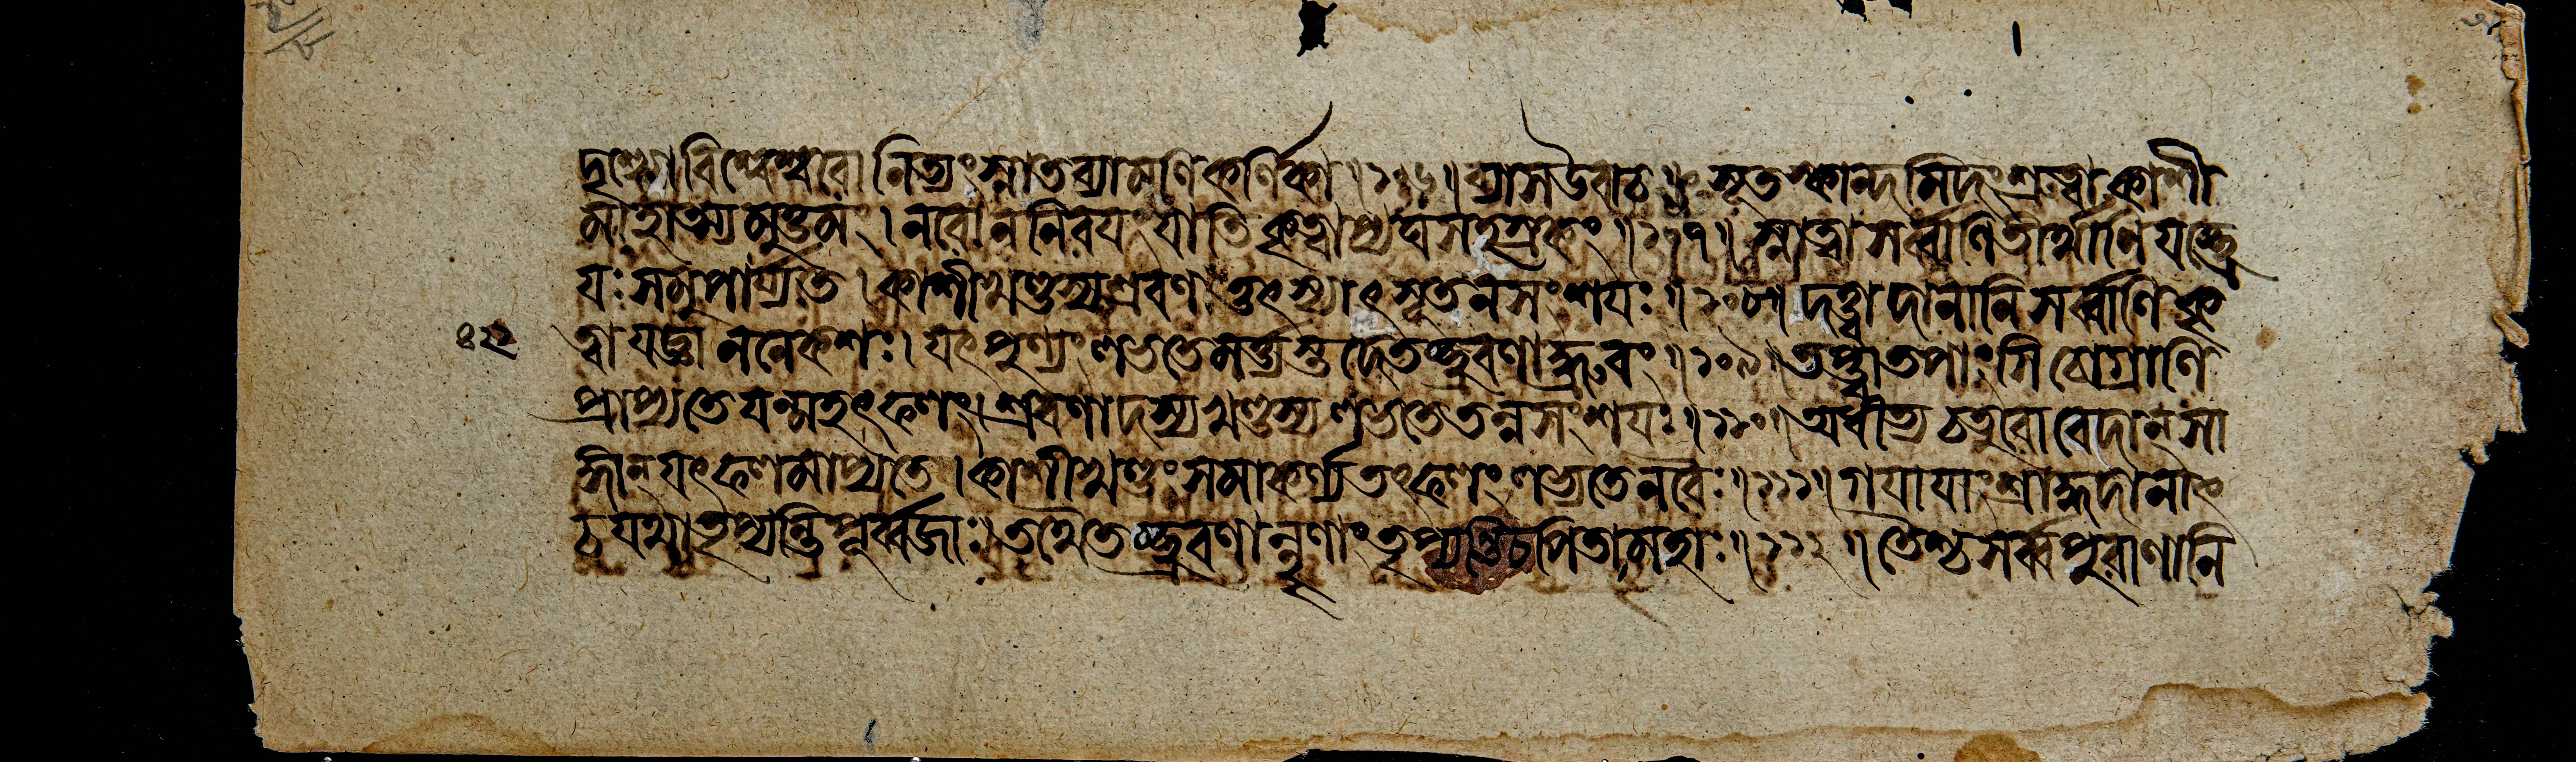 দৃশ্যো বিশ্বেশ্বরো নিত্যং স্নাতব্যা মণিকর্ণিকা ॥ ১০৬ ॥ ব্যাস উবাচ ॥ সূত স্কান্দমিদং শ্রুত্বা কাশী
মাহাত্ম্যমুত্তমং । নরো ন নিরয়ং যাতি কৃত্বাপ্যঘসহস্রকং ॥ ১০৭ ॥ স্নাত্বা সর্ব্বাণি তীর্থানি যচ্ছ্রে
যঃ সমুপার্জ্যতে । কাশীখণ্ডস্য শ্রবণাত্তৎ স্যাৎ সূত ন সংশয়ঃ ॥ ১০৮ ॥ দত্ত্বা দানানি সর্ব্বাণি কৃ
ত্বা যজ্ঞাননেকশঃ । যৎ পুণ্যং লভতে মর্ত্ত্যস্তদেতচ্ছ্রবণাদ্ধ্রুবং ॥ ১০৯ ॥ তপ্ত্বা তপাংসি চোগ্রাণি
প্রাপ্যতে যন্মহৎফলং । শ্রবণাদস্য খণ্ডস্য লভতে তন্ন সংশয়ঃ ॥ ১১০ ॥ অধীত্য চতুরো বেদান্ সা
ঙ্গান্ যৎফলমাপ্যতে । কাশীখণ্ডং সমাকর্ণ্য তৎফলং লভ্যতে নরৈঃ ॥ ১১১ ॥ গয়ায়াং শ্রাদ্ধদানাৎ
চ যথা তৃপ্যন্তি পূর্ব্বজাঃ । তথৈতচ্ছ্রবণান্নৃণাং তৃপ্যন্তি চ পিতামহাঃ ॥ ১১২ ॥ তৈশ্চ সর্ব্বপুরাণানি